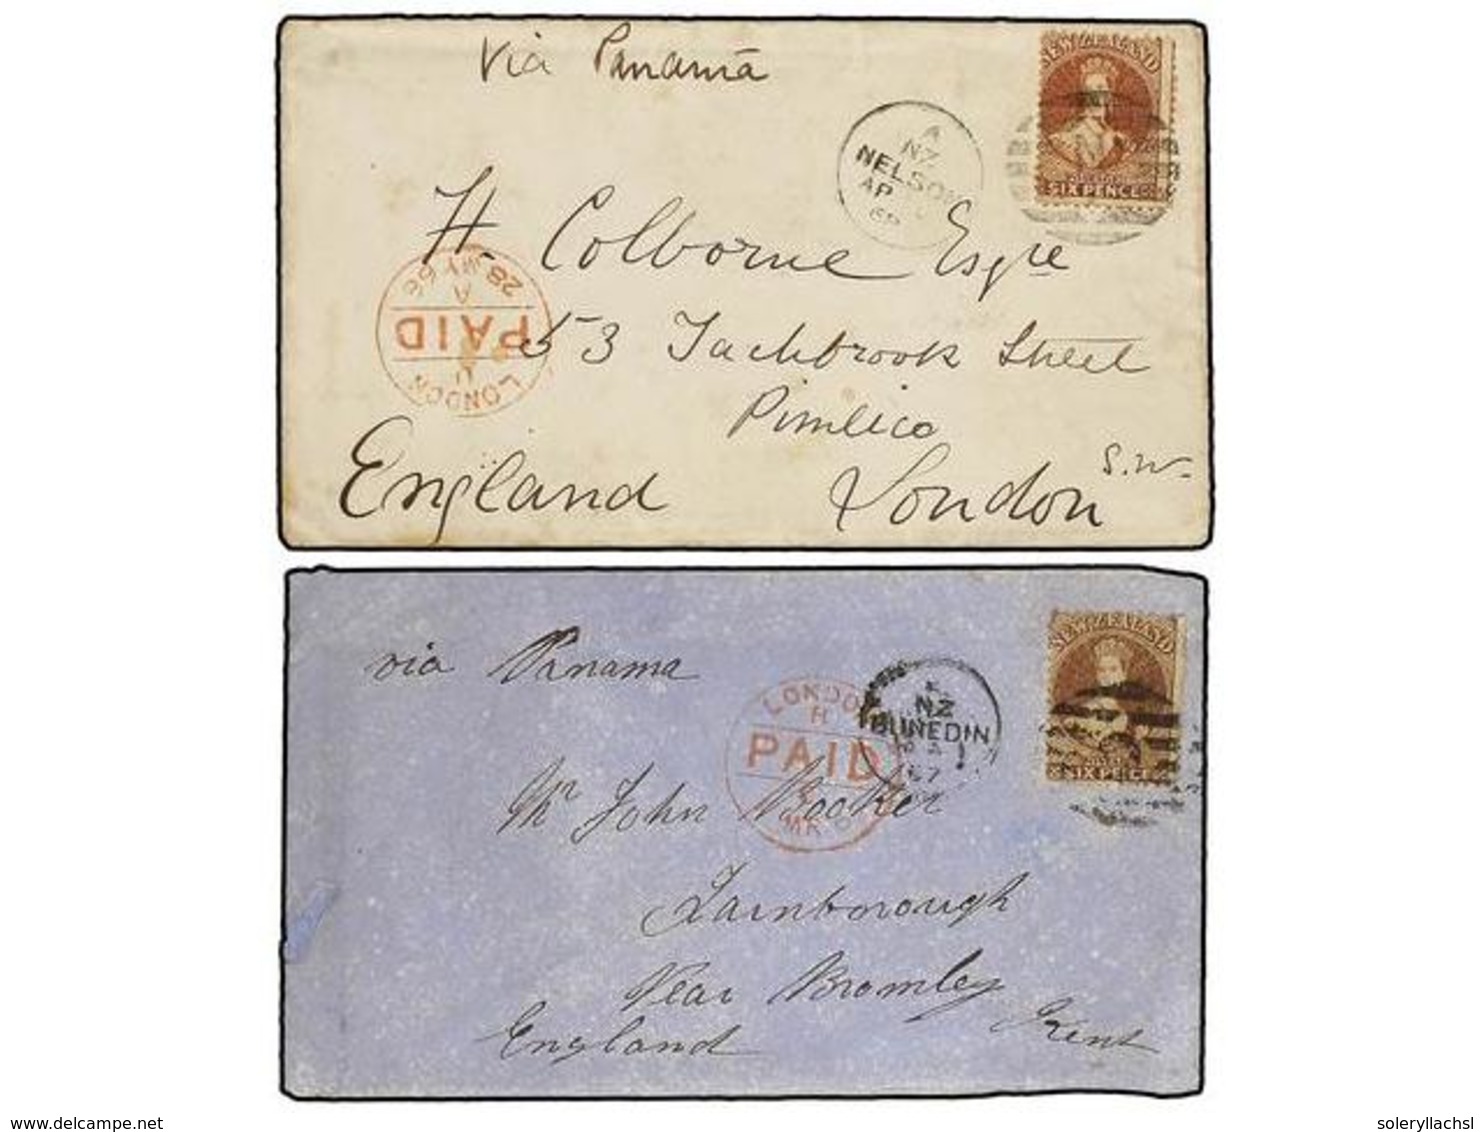 via Panama
NEW ZEALAND
SIX PENCE
A
NZ
NELSON
AP
H. Colborne Esqre
LONDON
PAID
A
28 MY 66
53 Tachbrook Street
Pimlico
London S.W.
England
via Panama
NEW ZEALAND
SIX PENCE
NZ
DUNEDIN
67
LONDON
PAID
MR
Mr John Booker
Farnborough
Near Bromley
Kent
England
www.delcampe.net
soleryllachsl